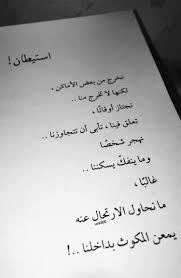 استيطان!
نخرج من بعض الأماكن،
لكنها لا تخرج منا ..
نجتاز أوقاتًا،
تعلق فينا، تأبى أن تتجاوزنا ..
نهجر شخصًا
وما ينفكّ يسكننا ..
غالبًا،
ما نحاول الارتحال عنه
يمعن المكوث بداخلنا ..!